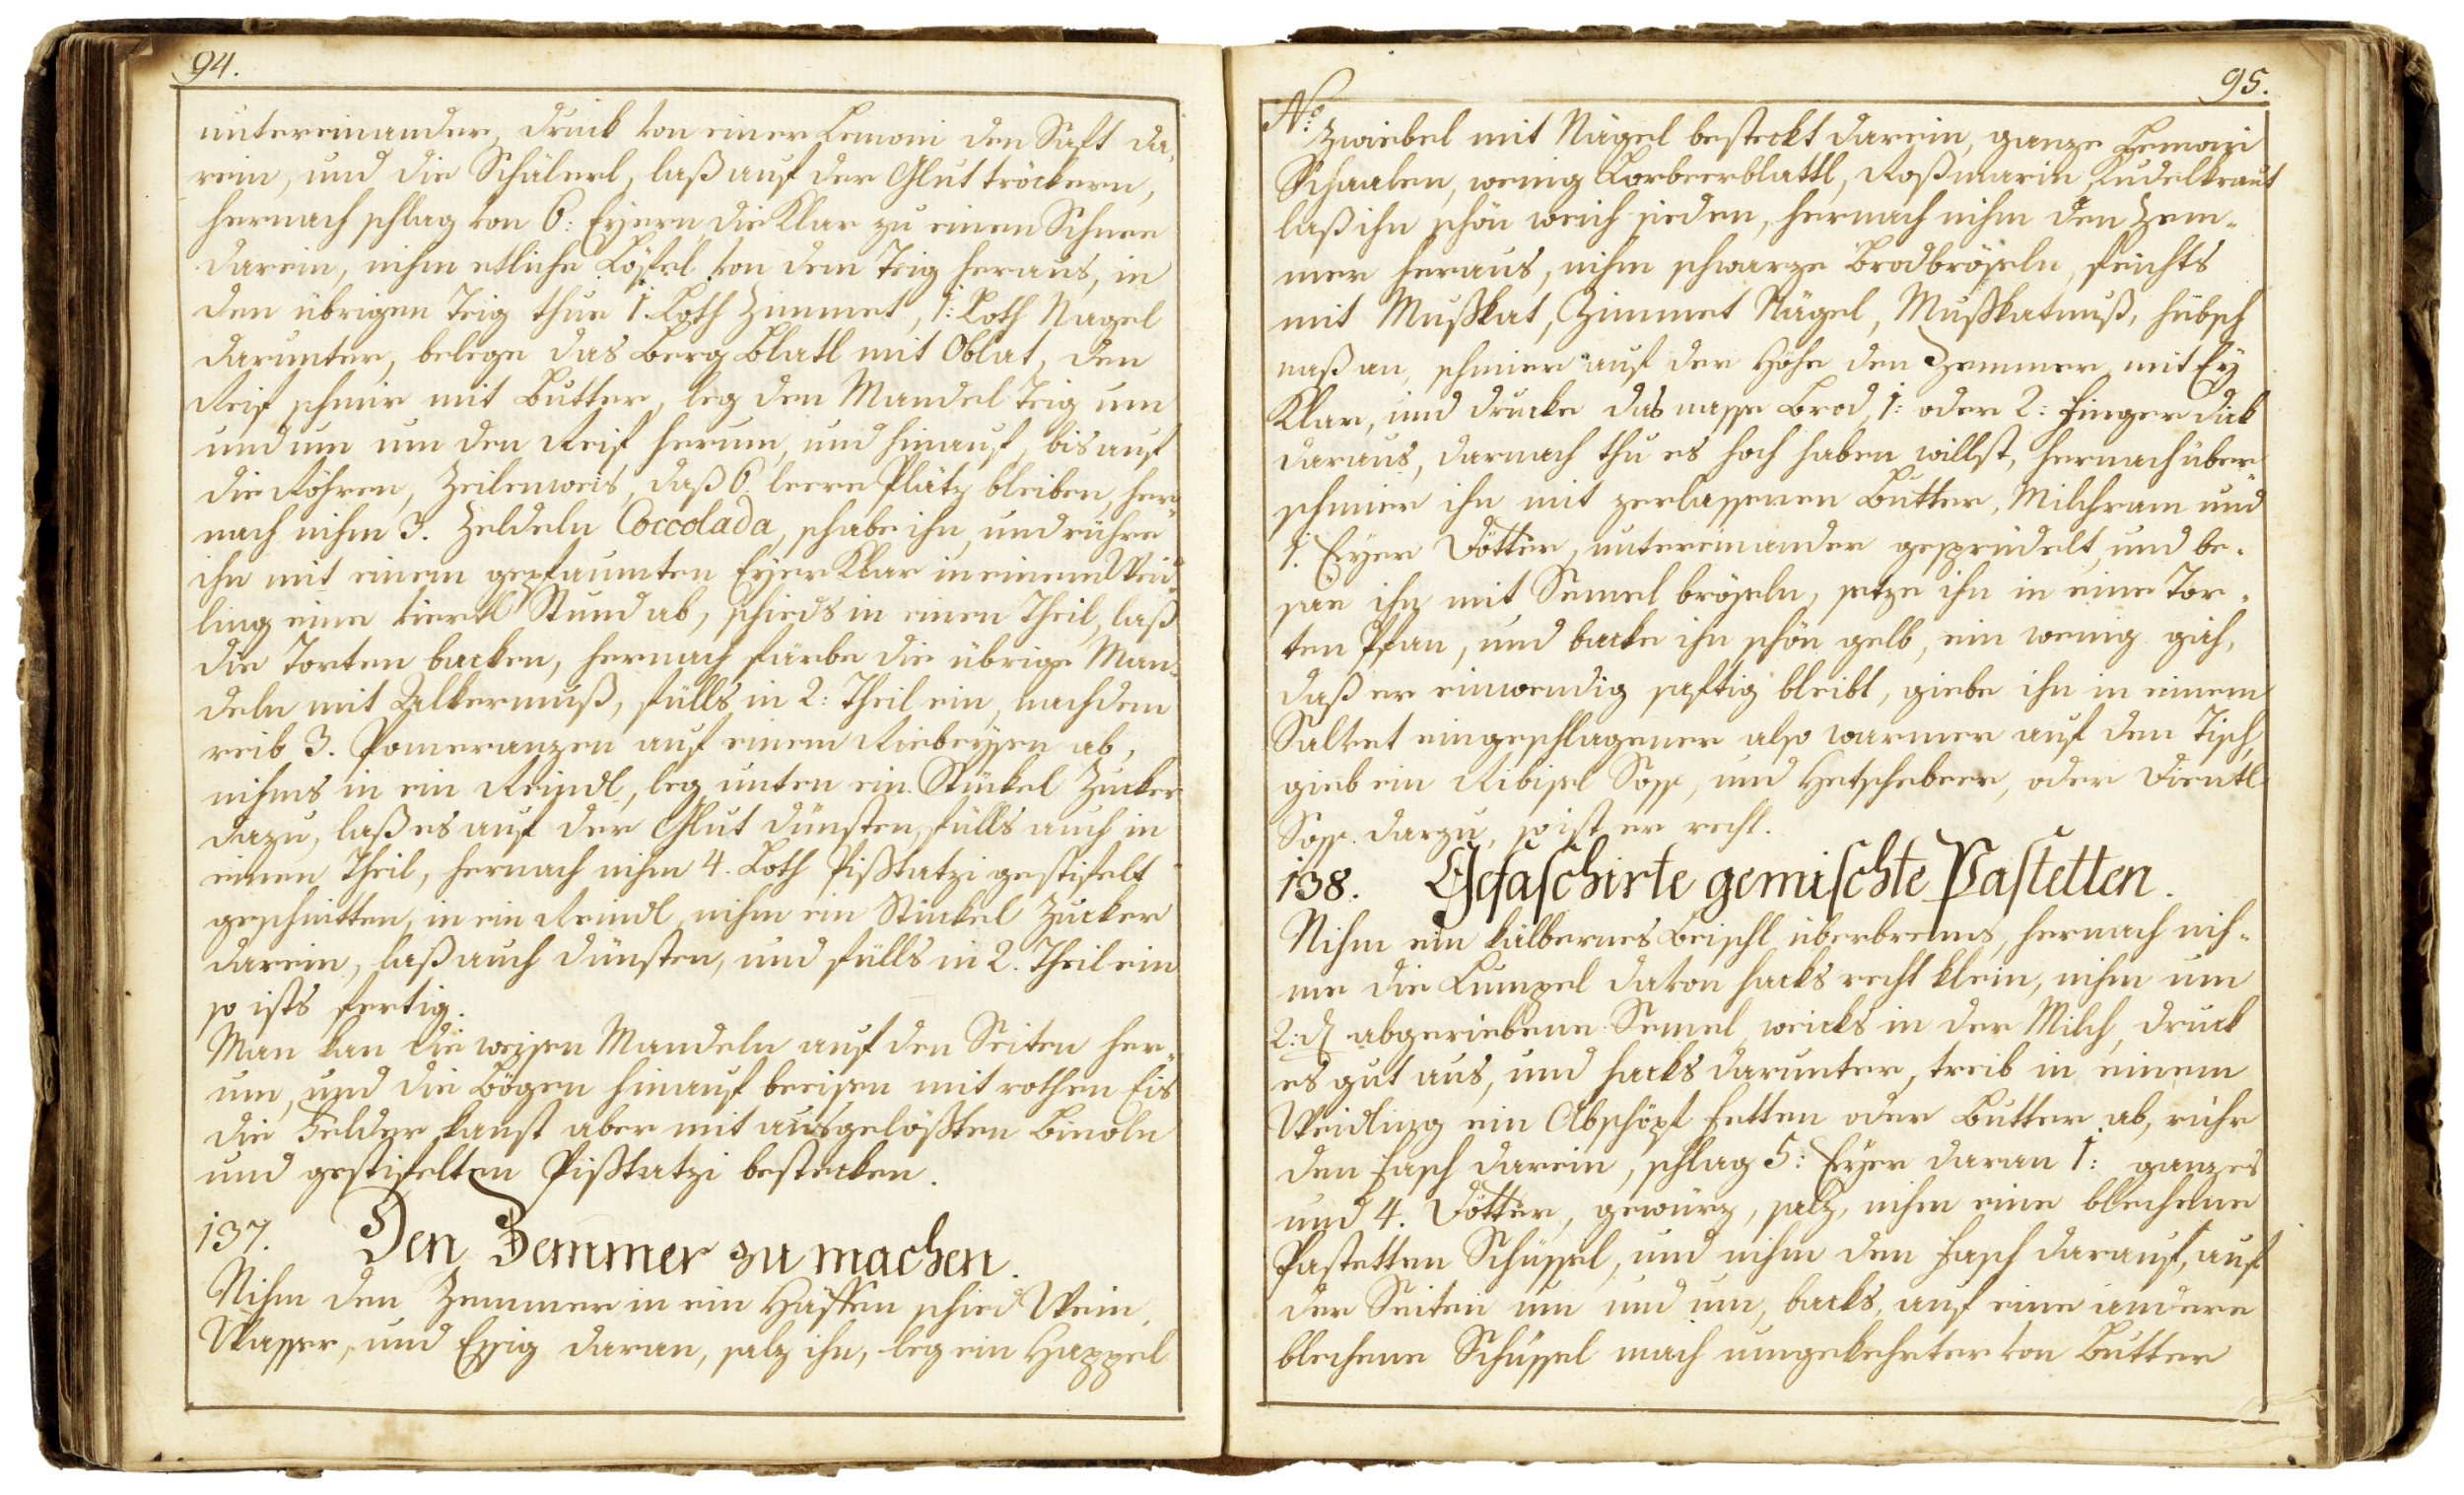 94.
untereinander, druck von einer Lemoni den Saft da„
rein, und die Schälerl, laß auf der Glut tröckern,
hernach schlag von 6: Eyern die Klar zu einem Schnee
darein, nihm etliche Löffel von dem Teig heraus, in
den übrigen Teig thue 1. Loth Zimmet, 1: Loth Nagel
darunter, belege das Berg Blatl mit Oblat, den
Reif schmir mit Butter, leg den Mandel Teig um
und um um den Reif herum, und hinauf, bis auf
die Röhren, Zeilenweis, daß 6 leere Plätz bleiben, her„
nach nihm 3. Zeldeln Coccolada, schabe ihn, und rühre
ihn mit einem gepfaumten Eyer Klar in einem Weid„
ling eine viertl Stund ab, schieds in einen Theil, laß
die Torten backen, hernach färbe die übrige Man„
deln mit Alkermuß, fülls in 2: Theil ein, nachdem
reib 3. Pomeranzen auf einem Riebeysen ab,
nihms in ein Reindl, leg unten ein Stückel Zucker
dazu, laß es auf der Glut dünsten, fülls auch in
einen Theil, hernach nihm 4. Loth Pißtatzi gestifelt
geschnitten, in ein Reindl, nihm ein Stückel Zucker
darein, laß auch dünsten, und fülls in 2. Theil ein
so ists fertig.
Man kan die weisen Mandeln auf den Seiten her„
um, und die Bögen hinauf beeisen mit rothen Eis
die Felder kanst aber mit ausgelößten Bineoln
und gestifelten Pißtatzi bestecken.
137. Den Zemmer zu machen.
Nihm den Zemmer in ein Häffen schied Wein,
Wasser, und Essig daran, salz ihn, leg ein Happel
95.
No:
Zwiebel mit Nägel besteckt darein, ganze Lemoni
Schaalen, wenig Lorbeerblattl, Roßmarin, Kudelkraut
laß ihn schön weich sieden, hernach nihm den Zem-
mer heraus, nihm schwarze Brodbröseln, feichts
mit Mußkat, Zimmet Nägel, Mußkatnuß, hübsch
naß an, schmier auf der Höhe den Zemmer mit Ey
Klar, und drucke das nasse Brod, 1: oder 2: finger dick
daraus, darnach thu es hoch haben willst, hernach über„
schmier ihn mit zerlassenen Butter, Milchram und
1. Eyer Dötter, untereinander gesprudelt, und be-
säe ihn mit Semel bröseln, setze ihn in eine Tor-
ten Pfan, und backe ihn schön gelb, ein wenig gäh,
daß er einwendig saftig bleibt, giebe ihn in einem
Salvet eingeschlagener also warmer auf den Tisch,
gieb ein Ribisel Soß, und Hetschebeer, oder Dientl
Soß. darzu, so ist er recht.
138. Gefaschirte gemischte Pastetten.
Nihm ein kälbernes Beischl überbrenns, hernach nih-
me die Lumpel davon hacks recht klein, nihm um
2: d abgeriebene Semel, weicks in der Milch, druck
es gut aus, und hacks darunter, treib in einem
Weidling ein Abschöpf fetten oder Butter ab, rühr
den fasch darein, schlag 5: Eyer daran 1: ganzes
und 4. Dötter, gewürz, salz, nihm eine blechelne
Pastetten Schüssel, und nihm den fasch darauf, auf
der Seiten um und um, backs, auf eine andere
blechene Schüssel mach umgekehrter von Butter